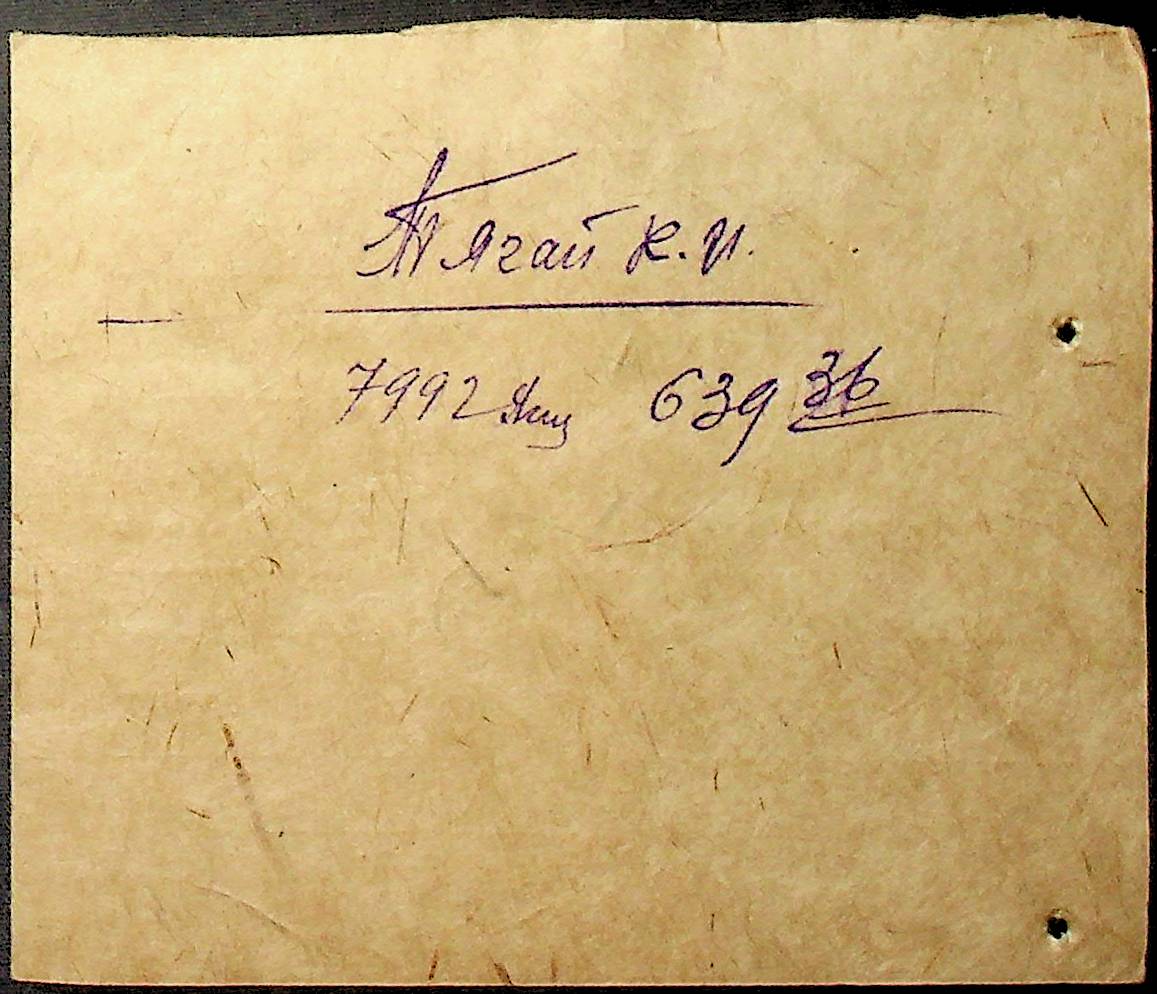 Тягай К. И.
7992 639 36